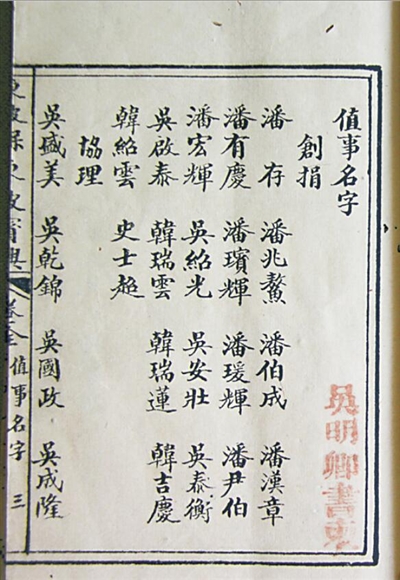 值事名字
創捐
潘存 潘兆鰲 潘伯成 潘漢章
潘有慶 潘璸輝 潘瑗輝 潘尹伯
潘宏輝 吳紹光 吳安壯 吳泰衡
吳啟泰 韓瑞雲 韓瑞蓮 韓吉慶
韓紹雲 史士趂
協理
吳盛美 吳乾錦 吳國政 吳成隆
賓興 卷全 值事名字 三
吳明卿書